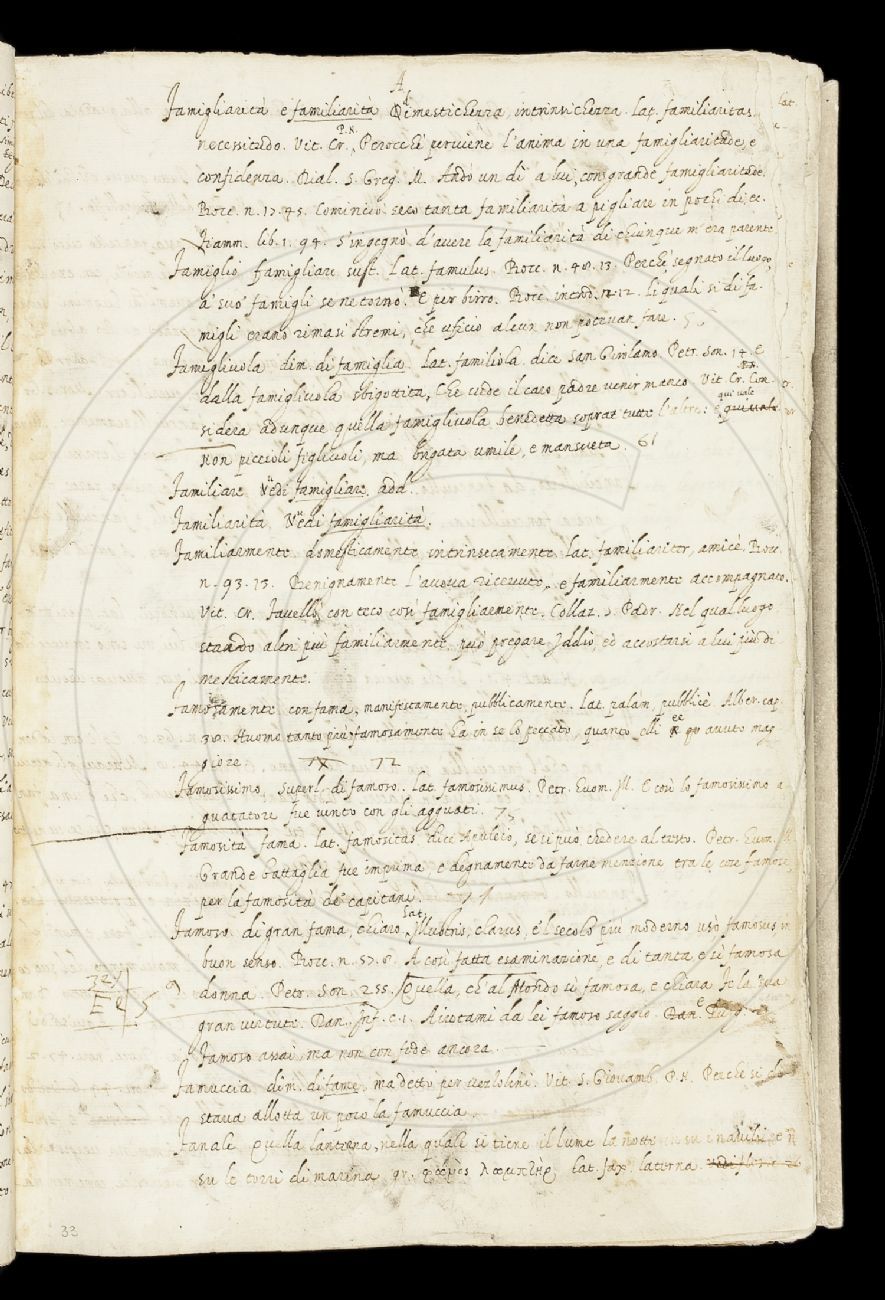 A
Famigliarità e familiarità Dimestichezza, intrinsichezza. Lat. familiaritas,
necessitudo. Vit. Cr. P.N. Perocchè perviene l'anima in una famigliaritade, e
confidenza. Dial. S. Greg. M. Andò un dì a lui, con grande famigliaritade.
Bocc. n. 17. 45. Cominciò seco tanta familiarità a pigliare in pochi dì, ec.
Fiamm. lib. 1. 94. S'ingegnò d'avere la familiarità di chiunque m'era parente
Famiglio famigliare sust. Lat. famulus. Bocc. n. 48. 13. Perchè, segnato il luogo
a' suo' famigli se ne tornò. E per birro. Bocc. introd. 12. Li quali si di fa-
migli erano rimasi stremi, che uficio alcun non potevan fare.
Famigliuola dim. di famiglia. Lat. familiola dice San Girolamo. Petr. Son. 14. E
dalla famigliuola sbigottita, Che vede il caro padre venir manco. Vit. Cr. P.N. Con-
sidera adunque quella famigliuola benedetta sopra tutte l'altre: qui vale
non piccioli figliuoli, ma brigata umile, e mansueta. 61
Familiare Vedi famigliare, add.
Familiarità Vedi famigliarità.
Familiarmente domesticamente, intrinsecamente. Lat. familiariter, amicè. Bocc.
n. 93. 13. Benignamente l'aveva ricevuto, e familiarmente accompagnato.
Vit. Cr. Favellò con teco così famigliarmente. Collaz. S. Padr. Nel qual luogo
stando altri più familiarmente, può pregare Iddio, ed accostarsi a lui più di
mesticamente.
Famosamente con fama, manifestamente, pubblicamente. Lat. palam, publicè. Alber. cap.
38. Huomo tanto più famosamente ha in se lo peccato, quanto elli è avuto mag
giore. 72
Famosissimo, Superl. di famoso. Lat. famosissimus. Petr. Huom. Ill. E così lo famosissimo a
guatatore fue vinto con gli agguati.
Famosità fama. Lat. famositas dice Apuleio, se si può credere al testo. Petr. Huom.
Grande battaglia fue imprima, e degnamente da farne menzione tra le cose famose
per la famosità de' capitani.
Famoso di gran fama, chiaro. Lat. illustris, clarus, e'l secolo più moderno usò famosus in
buon senso. Bocc. n. 57. 8. A così fatta esaminazione, e di tanta e sì famosa
donna. Petr. Son. 255. Quella, ch'al Mondo sì famosa, e chiara Fe la sua
gran virtute. Dan. Inf. c. 1. Aiutami da lei famoso saggio. Dan. Purg.
Famoso assai, ma non con fede ancora.
Famuccia dim. di fame, ma detto per vezzolini. Vit. S. Giovamb. P. N. Perchè si
stava allotta un poco la famuccia.
Fanale Quella lanterna, nella quale si tiene il lume la notte in su i navili, e in
su le torri di marina gr. λαμπτὴρ Lat. fax, laterna.
33